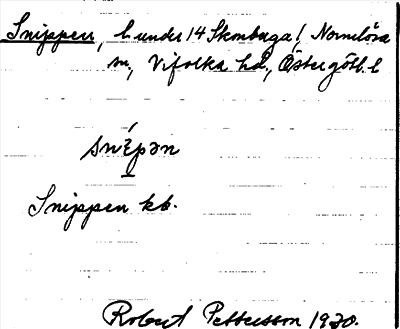 Snippen, l under 14 Skonberga!, Normlösa
sn, Vifolka hd, Östergötl. l
snépən
Snippen kb.
Robert Pettersson 1930.